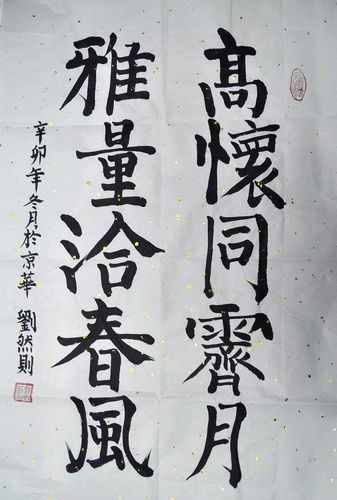 高懷同霽月
雅量洽春風
辛卯年冬月於京華 劉然則